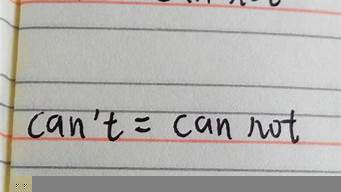 can't = can not